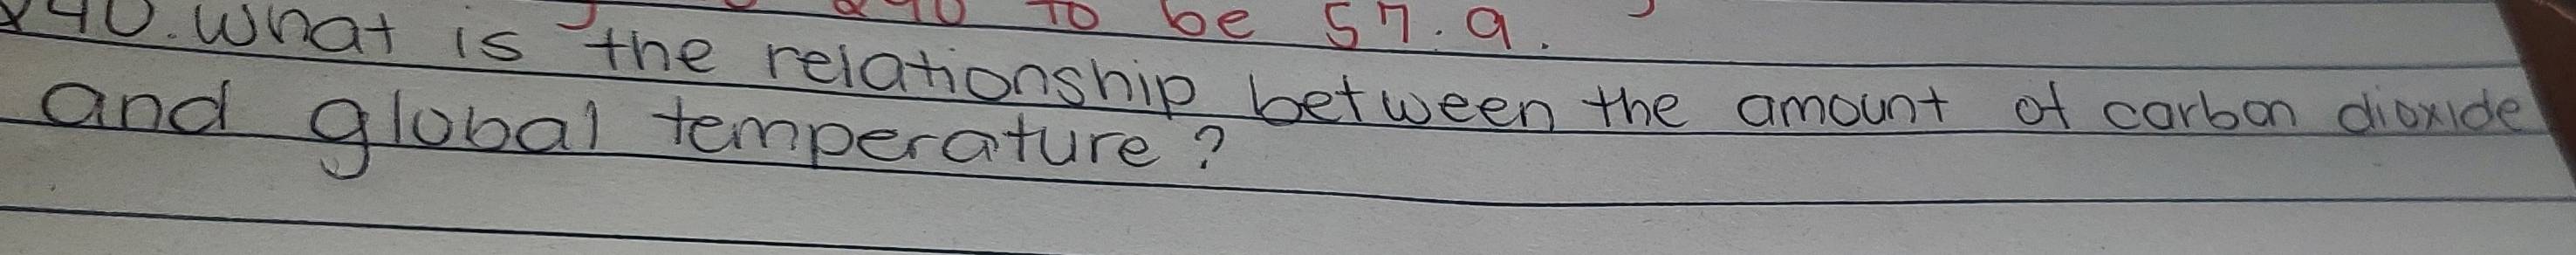 240 to be 57.9.
240. What is the relationship between the amount of carbon dioxide
and global temperature?